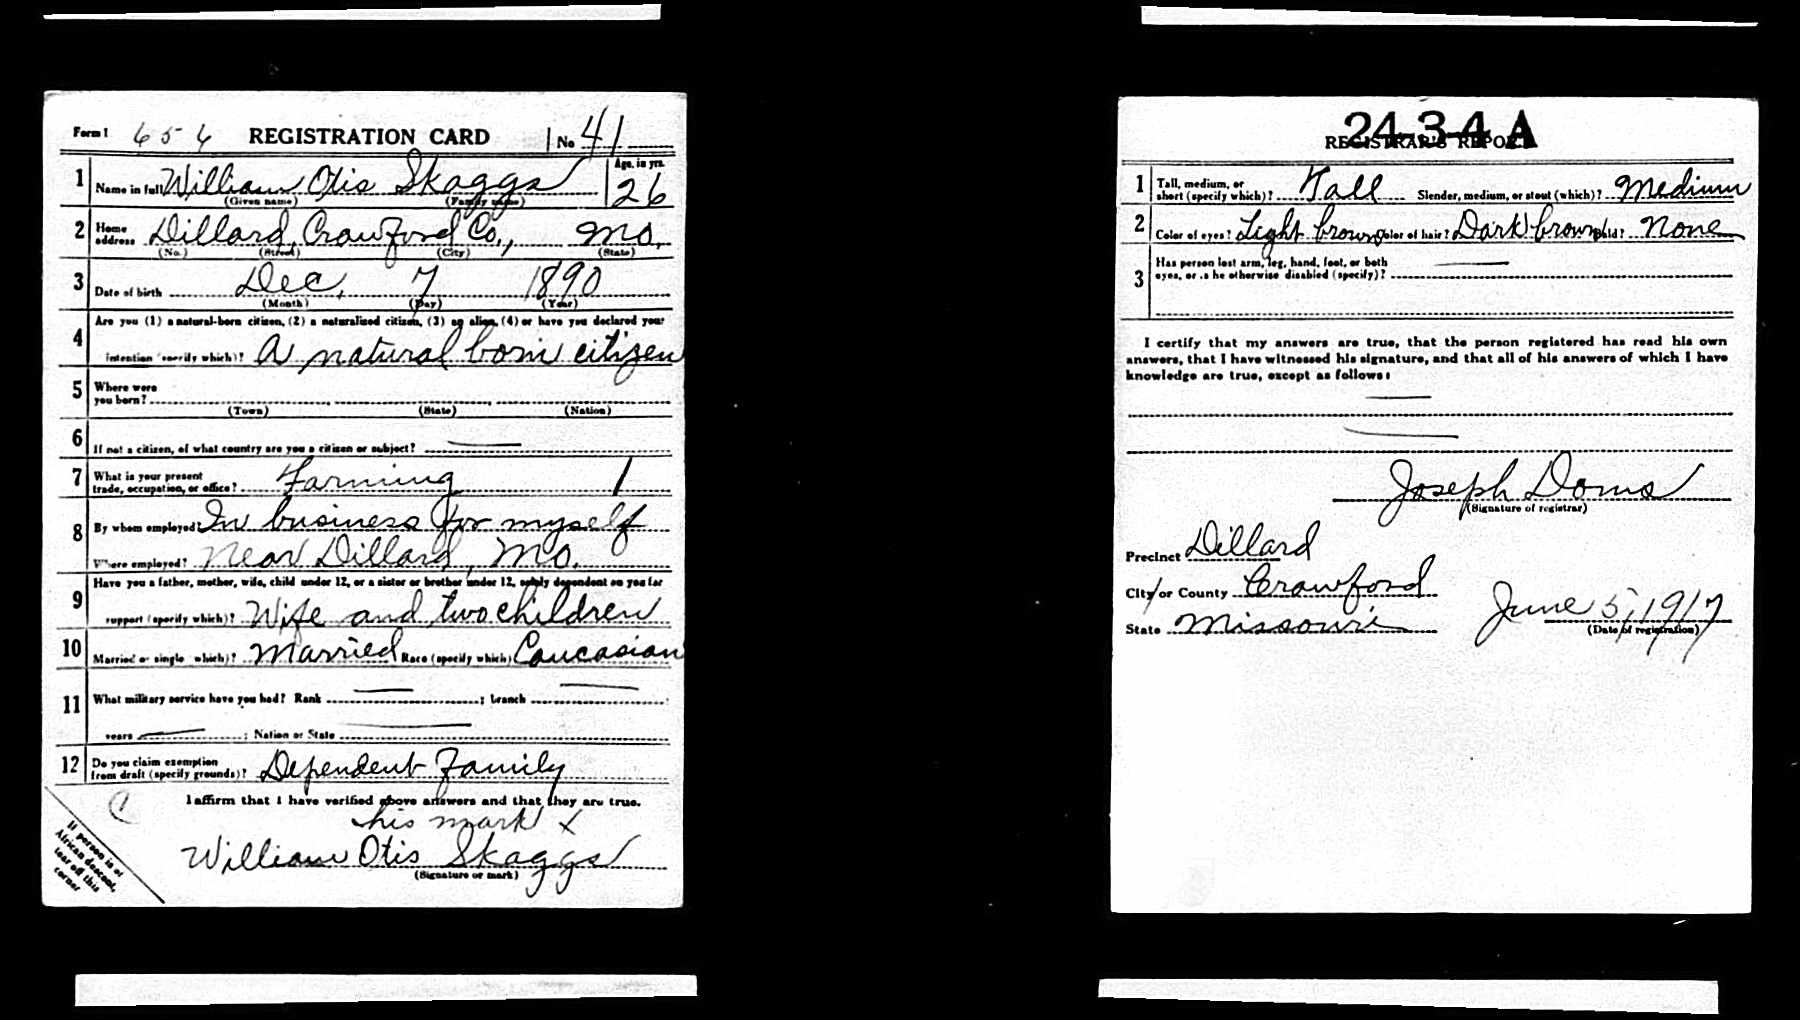 Form 1 654 REGISTRATION CARD No 41
1 Name in full William Otis Skaggs Age, in yrs. 26
(Given name) (Family name)
2 Home address Dillard, Crawford Co., Mo.
(No.) (Street) (City) (State)
3 Date of birth Dec. 7 1890
(Month) (Day) (Year)
4 Are you (1) a natural-born citizen, (2) a naturalized citizen, (3) an alien, (4) or have you declared your
intention (specify which)? A natural born citizen
5 Where were you born?
(Town) (State) (Nation)
6 If not a citizen, of what country are you a citizen or subject?
7 What is your present trade, occupation, or office? Farming 1
8 By whom employed? In business for myself
Where employed? Near Dillard, Mo.
9 Have you a father, mother, wife, child under 12, or a sister or brother under 12, solely dependent on you for
support (specify which)? Wife and two children
10 Married or single (which)? Married Race (specify which) Caucasian
11 What military service have you had? Rank ; branch
years ; Nation or State
12 Do you claim exemption from draft (specify grounds)? Dependent Family
I affirm that I have verified above answers and that they are true.
his mark x
William Otis Skaggs
(Signature or mark)
If person is of
African descent,
tear off this
corner
24-3-4 A
REGISTRAR'S REPORT
1 Tall, medium, or short (specify which)? Tall Slender, medium, or stout (which)? Medium
2 Color of eyes? Light brown Color of hair? Dark brown Bald? None
3 Has person lost arm, leg, hand, foot, or both
eyes, or is he otherwise disabled (specify)?
I certify that my answers are true, that the person registered has read his own
answers, that I have witnessed his signature, and that all of his answers of which I have
knowledge are true, except as follows:
Joseph Doms
(Signature of registrar)
Precinct Dillard
City or County Crawford
State Missouri June 5, 1917
(Date of registration)